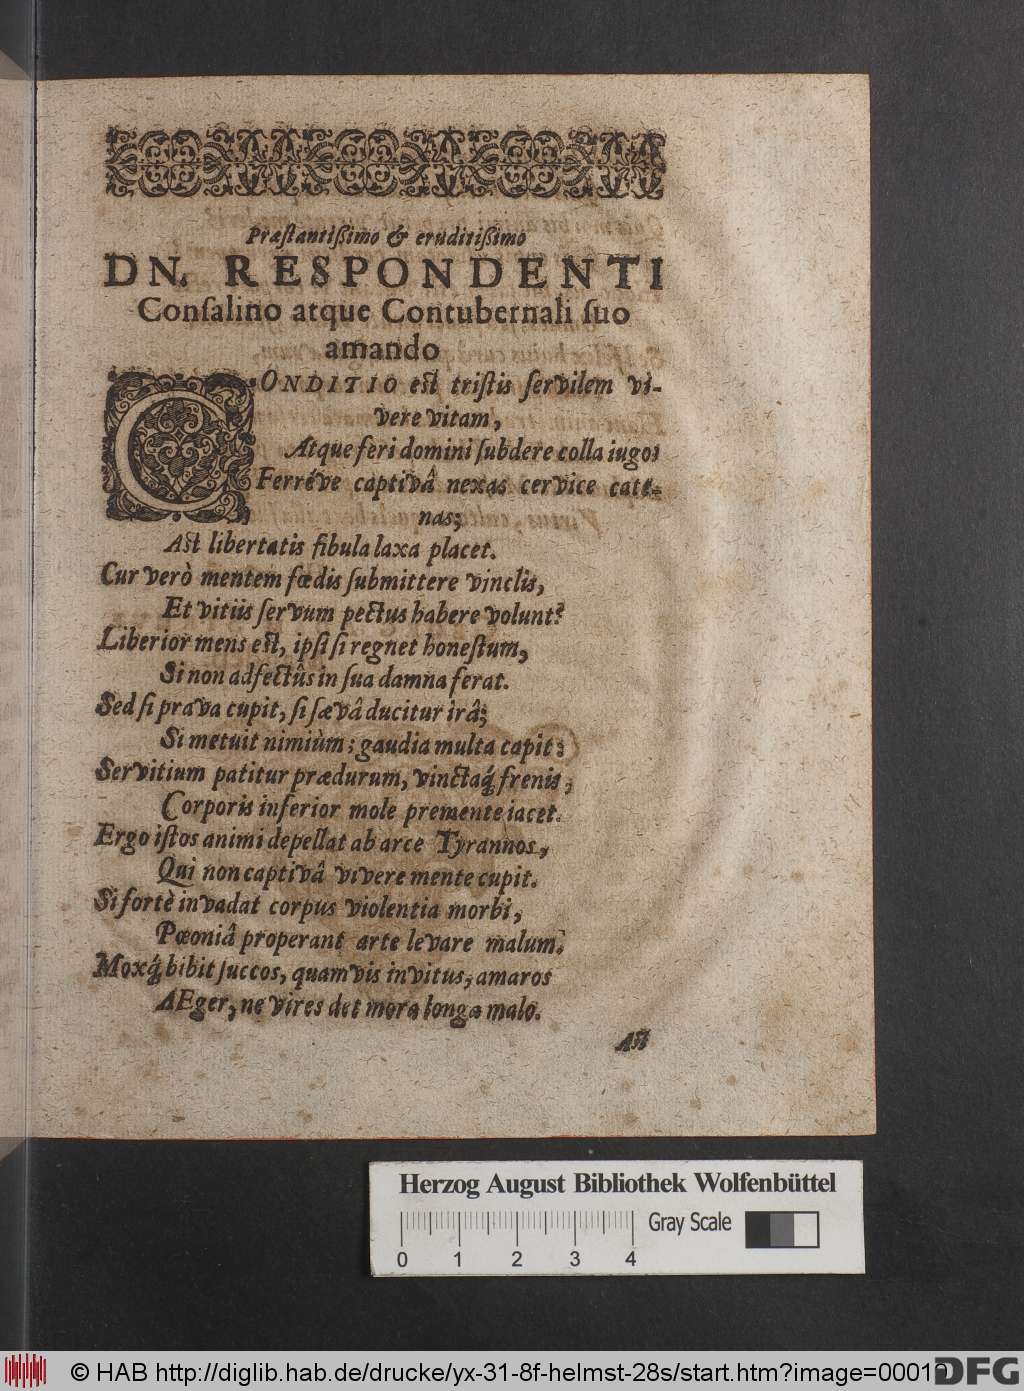 Præſtantißimo & eruditißimo
DN. RESPONDENTI
Conſalino atque Contubernali ſuo
amando
CONDITIO est triſtis ſervilem vi-
vere vitam,
Atque feri domini ſubdere colla iugo:
Ferréve captivâ nexas cervice cate-
nas;
Ast libertatis fibula laxa placet.
Cur verò mentem fœdis ſubmittere vinclis,
Et vitiis ſervum pectus habere volunt?
Liberior mens est, ipſi ſi regnet honeſtum,
Si non adfectûs in ſua damna ferat.
Sed ſi prava cupit, ſi ſævâ ducitur irâ;
Si metuit nimiùm; gaudia multa capit:
Servitium patitur prædurum, vinctaq́; frenis,
Corporis inferior mole premente iacet.
Ergo iſtos animi depellat ab arce Tyrannos,
Qui non captivâ vivere mente cupit.
Si fortè invadat corpus violentia morbi,
Pœoniâ properant arte levare malum.
Moxq́; bibit ſuccos, quamvis invitus, amaros
AEger, ne vires det mora longa malo.
Ast
Herzog August Bibliothek Wolfenbüttel
Gray Scale
0 1 2 3 4
© HAB http://diglib.hab.de/drucke/yx-31-8f-helmst-28s/start.htm?image=00012
DFG